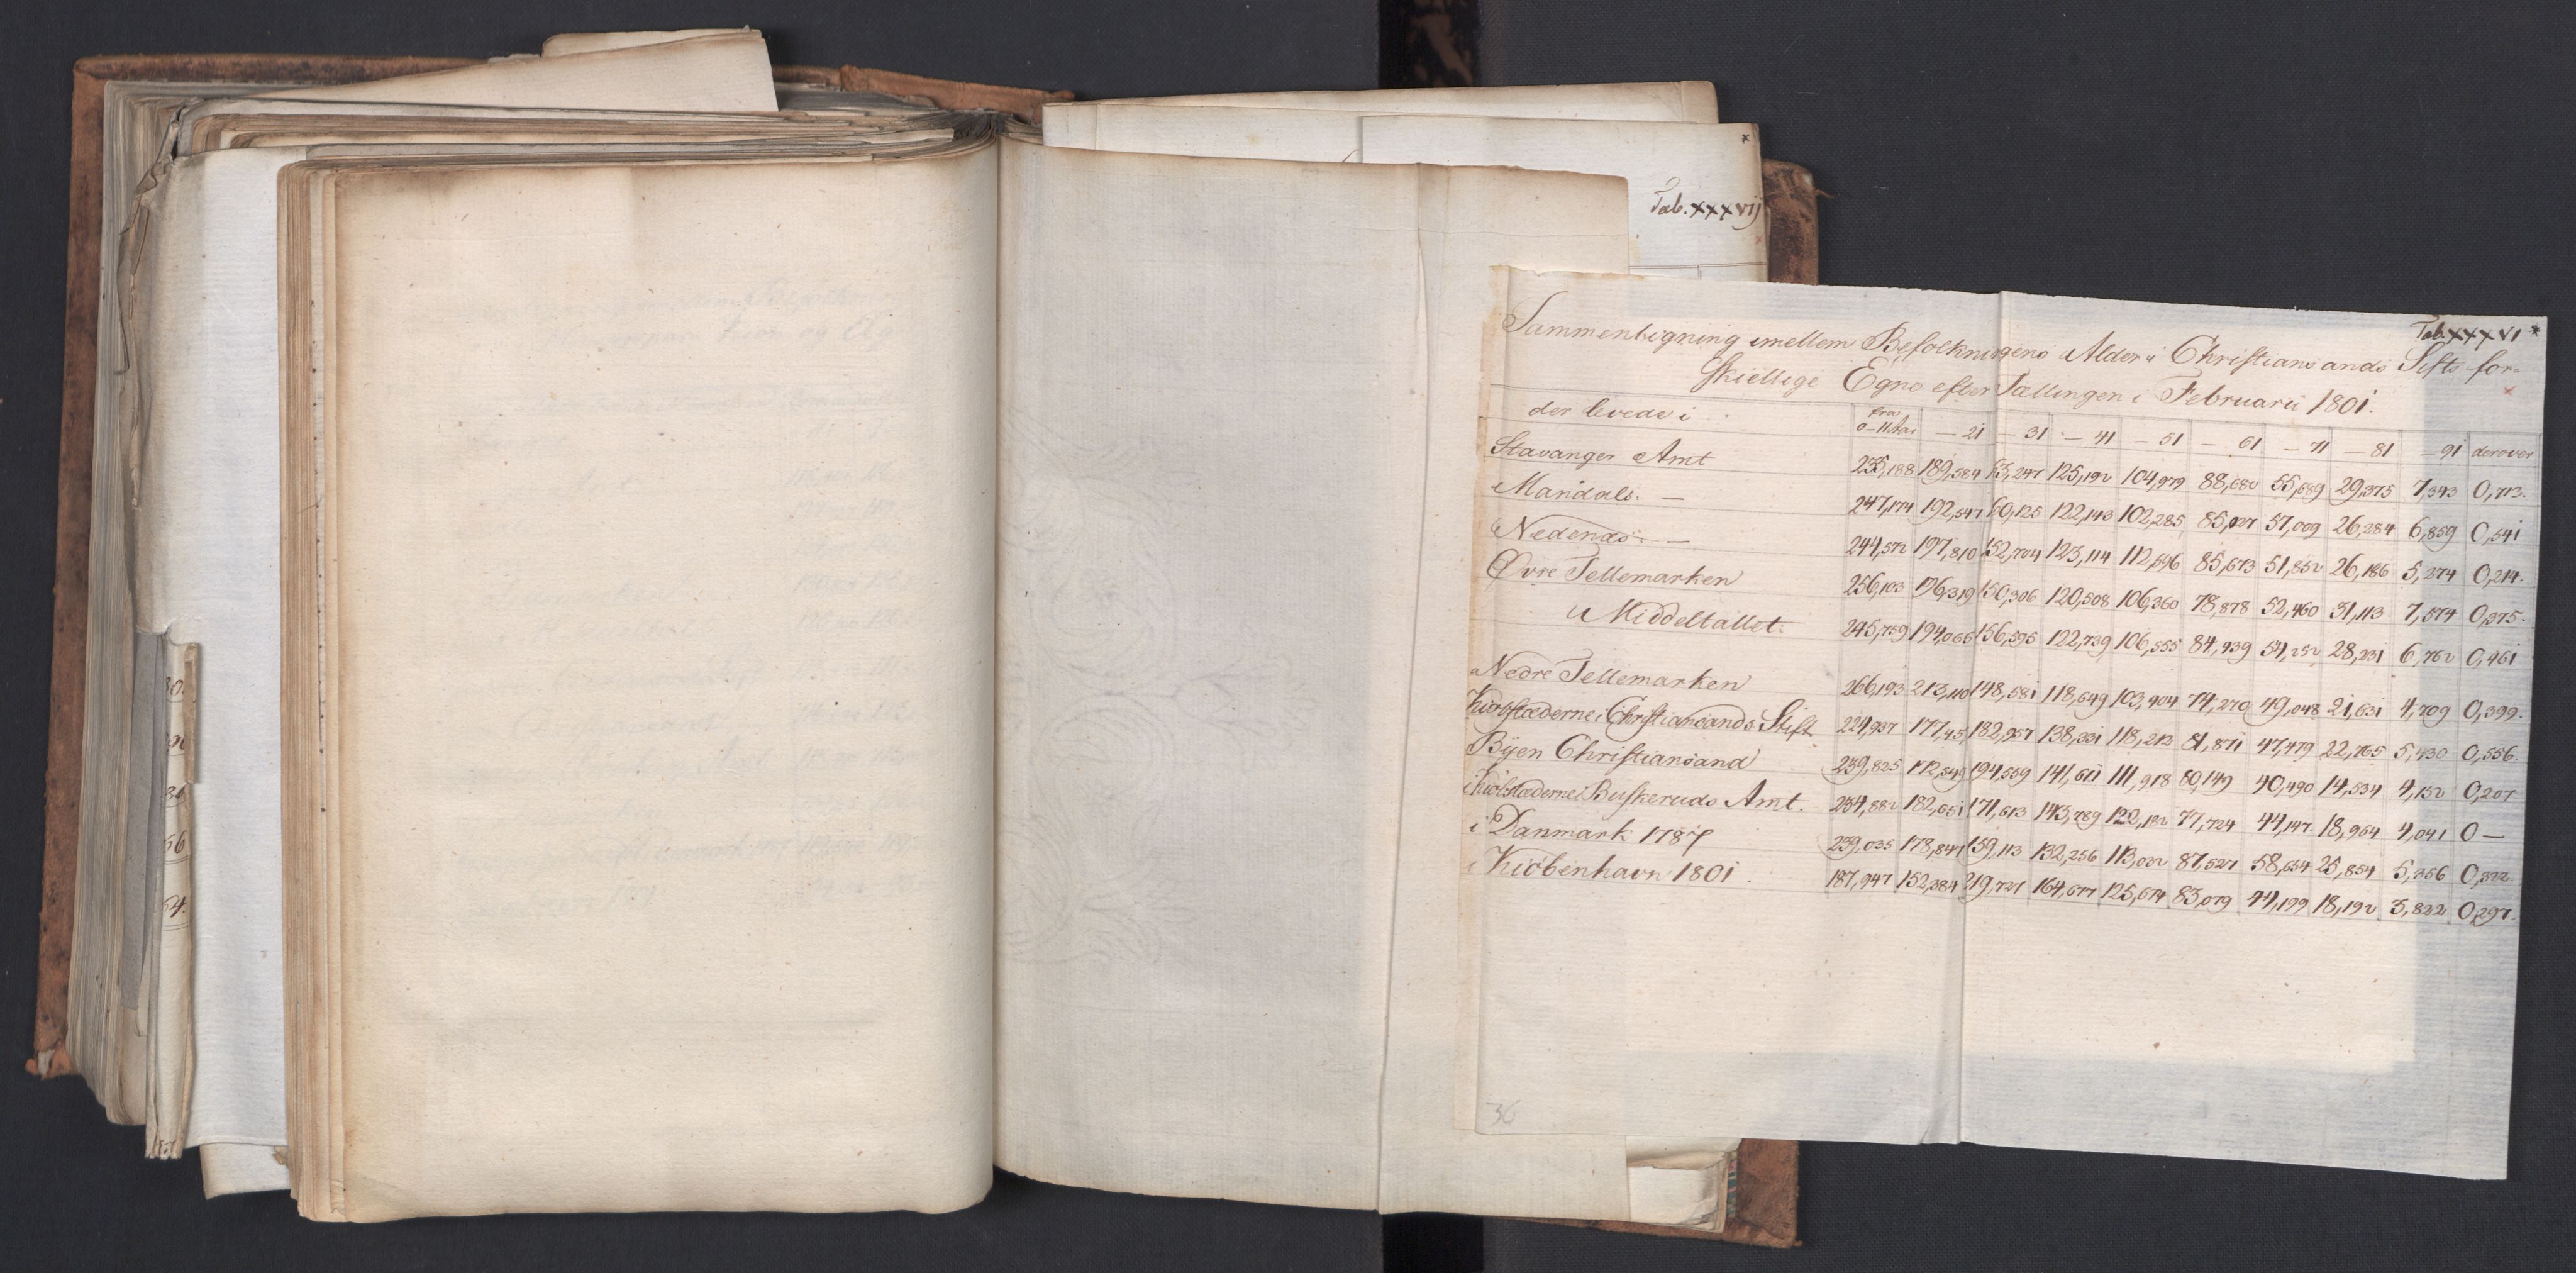 Tab. XXXVIj
Tab. XXXVI *
Sammenligning imellem Befolkningens Alder i Christiansands Stifts for-
skiellige Egne efter Tællingen i Februarii 1801.
der levede i fra 0-11 Aar — 21 — 31 — 41 — 51 — 61 — 71 — 81 — 91 derover
Stavanger Amt 189,584 125,192 104,979 88,680 55,689 29,375 7,343 0,713.
Mandals. — 247,174 192,547 60,125 122,143 102,285 57,009 26,284 6,859 0,541
Nedenæs. — 244,572 197,810 152,704 123,114 112,596 85,673 51,852 26,186 5,274 0,214.
Øvre Tellemarken 256,103 196,319 150,306 120,508 106,360 78,878 52,460 31,113 7,574 0,375.
Middeltallet: 245,759 194,065 156,595 122,739 106,555 84,939 54,252 28,231 6,762 0,461
Nedre Tellemarken 266,193 213,110 148,581 118,649 103,404 74,270 49,048 21,631 4,709 0,399.
Kiøbstæderne i Christiansands Stift 224,937 177,45 182,957 138,331 118,212 81,871 47,479 22,765 5,430 0,556.
Byen Christiansand 239,825 172,549 194,559 141,611 111,918 80,149 40,490 14,534 4,152 0,207
i Kiøbstæderne i Buskeruds Amt. 234,882 182,651 171,613 143,789 122,182 77,724 44,147 18,964 4,041 0 —
i Danmark 1787 239,035 178,847 159,113 132,256 113,032 87,527 58,654 25,854 5,356 0,322.
i Kiøbenhavn 1801. 187,947 152,384 219,727 164,677 125,674 83,079 44,199 18,192 3,822 0,297.
36